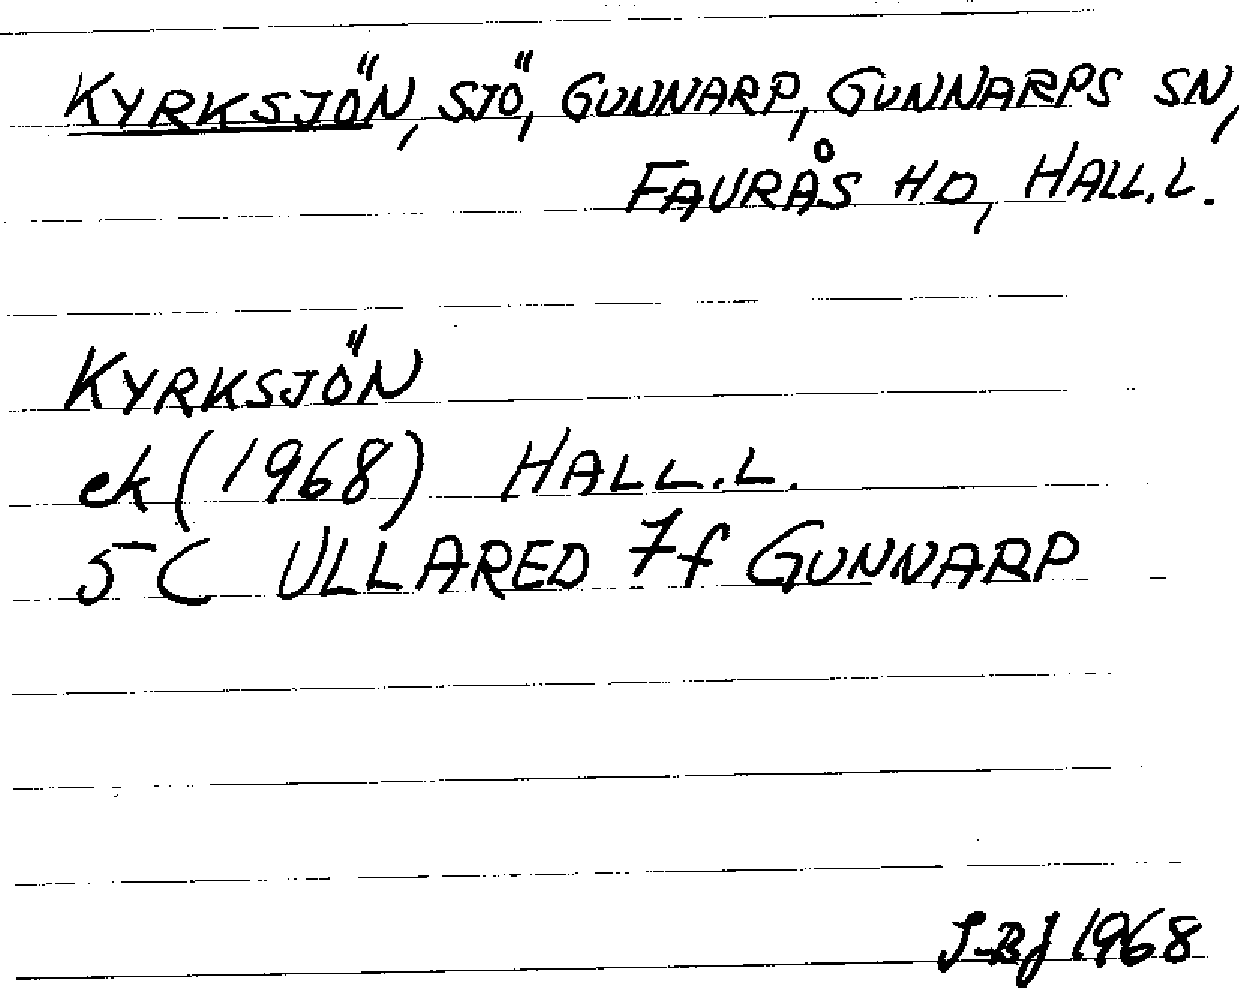 KYRKSJÖN, SJÖ, GUNNARP, GUNNARPS SN,
FAURÅS HD, HALL.L.
KYRKSJÖN
ek (1968) HALL.L.
5C ULLARED 7f GUNNARP
SBJ 1968